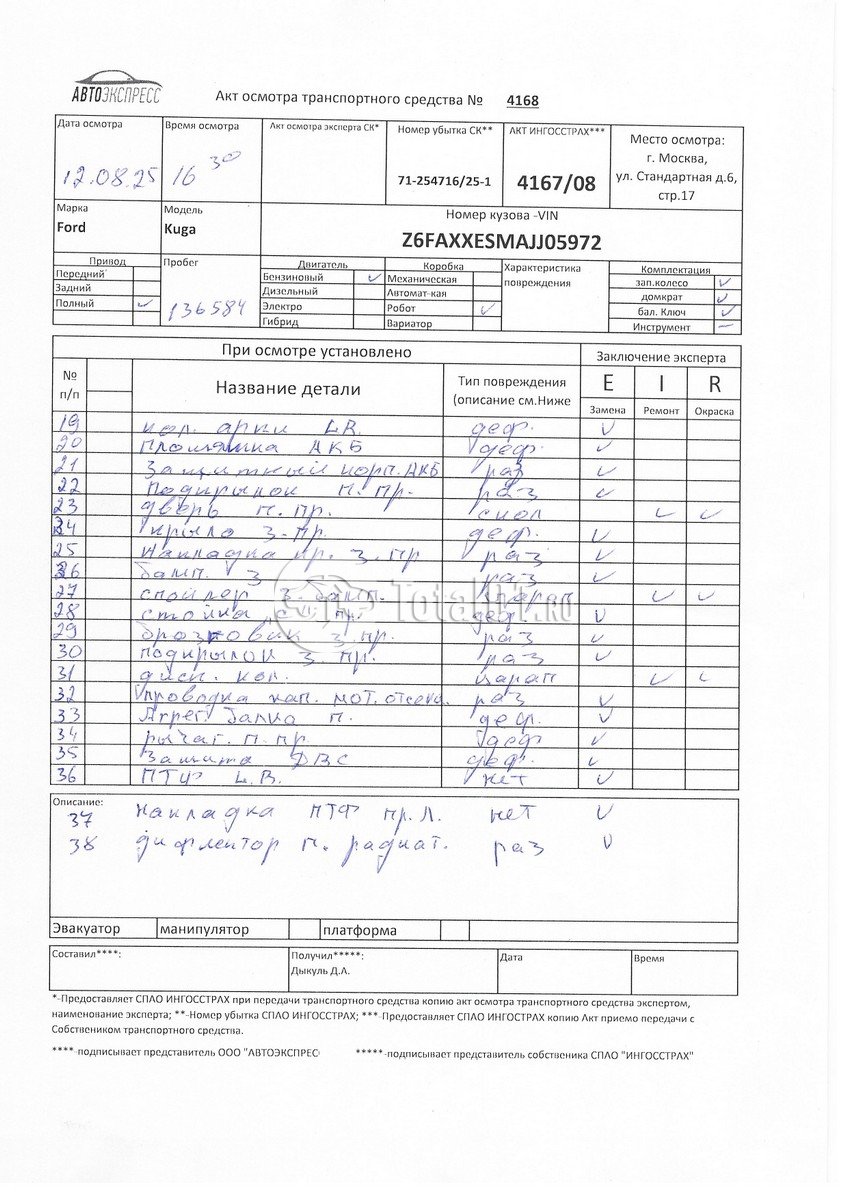 АВТОЭКСПРЕСС
Акт осмотра транспортного средства № 4168
Дата осмотра Время осмотра Акт осмотра эксперта СК* Номер убытка СК** АКТ ИНГОССТРАХ*** Место осмотра:
г. Москва,
12.08.25 16 30 71-254716/25-1 4167/08 ул. Стандартная д.6,
стр.17
Марка Модель Номер кузова -VIN
Ford Kuga Z6FAXXESMAJJ05972
Привод Пробег Двигатель Коробка Характеристика Комплектация
Передний Бензиновый ✓ Механическая повреждения зап.колесо ✓
Задний Дизельный Автомат-кая домкрат ✓
Полный ✓ 136584 Электро Робот ✓ бал. Ключ ✓
Гибрид Вариатор Инструмент —
При осмотре установлено Заключение эксперта
№ п/п Название детали Тип повреждения (описание см.Ниже E I R
Замена Ремонт Окраска
19 арки деф. ✓
20 АКБ деф. ✓
21 Защитный корп. АКБ раз ✓
22 Подкрылок п. пр. раз ✓
23 дверь п. пр. скол ✓ ✓
24 крыло з. пр. деф. ✓
25 Накладка кр. з. пр раз ✓
26 бамп. з раз ✓
27 спойлер з. бамп. ✓ ✓
28 стойка деф ✓
29 брозговик з. пр. раз ✓
30 подкрылок з. пр. раз ✓
31 диск. кол. царап ✓ ✓
32 проводка кап. мот. отсека. раз ✓
33 Агрег. балка п. деф. ✓
34 рычаг. п. пр. деф ✓
35 Защита ДВС деф. ✓
36 ПТФ нет ✓
Описание:
37 накладка ПТФ пр. л. нет ✓
38 дифлектор п. радиат. раз ✓
Эвакуатор манипулятор платформа
Составил****: Получил*****: Дата Время
Дыкуль Д.А.
*-Предоставляет СПАО ИНГОССТРАХ при передачи транспортного средства копию акт осмотра транспортного средства экспертом,
наименование эксперта; **-Номер убытка СПАО ИНГОССТРАХ; ***-Предоставляет СПАО ИНГОСТРАХ копию Акт приемо передачи с
Собствеником транспортного средства.
****-подписывает представитель ООО "АВТОЭКСПРЕС *****-подписывает представитель собственика СПАО "ИНГОССТРАХ"